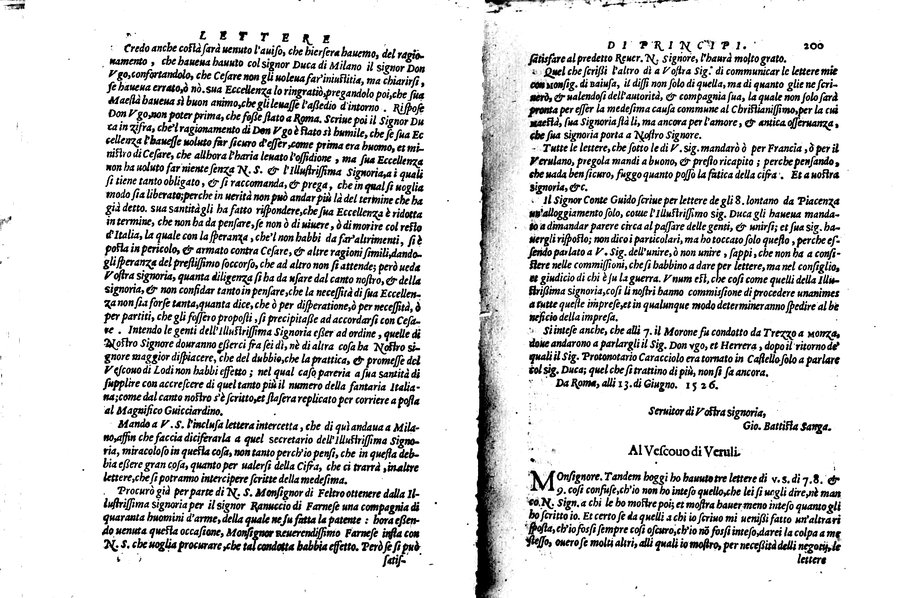 LETTERE
Credo anche costà sarà uenuto l'auiso, che hiersera hauemo, del ragio-
namento, che haueua hauuto col signor Duca di Milano il signor Don
Vgo, confortandolo, che Cesare non gli uoleua far'iniustitia, ma chiarirsi,
se haueua errato, ò nò. sua Eccellenza lo ringratiò, pregandolo poi, che sua
Maestà haueua sì buon animo, che gli leuasse l'assedio d'intorno. Rispose
Don Vgo, non poter prima, che fosse stato a Roma. Scriue poi il Signor Du
ca in zifra, che'l ragionamento di Don Vgo è stato sì humile, che se sua Ec
cellenza l'hauesse uoluto far sicuro d'esser, come prima era huomo, et mi-
nistro di Cesare, che allhora l'haria leuato l'ossidione, ma sua Eccellenza
non ha uoluto far niente senza N. S. & l'Illustrissima Signoria, a i quali
si tiene tanto obligato, & si raccomanda, & prega, che in qual si uoglia
modo sia liberato; perche in uerità non può andar più là del termine che ha
già detto. sua santità gli ha fatto rispondere, che sua Eccellenza è ridotta
in termine, che non ha da pensare, se non ò di uiuere, ò di morire col resto
d'Italia, la quale con la speranza, che'l non habbi da far'altrimenti, si è
posta in pericolo, & armato contra Cesare, & altre ragioni simili, dando-
gli speranza del prestissimo soccorso, che ad altro non si attende; però ueda
Vostra signoria, quanta diligenza si ha da usare dal canto nostro, & della
signoria, & non confidar tanto in pensare, che la necessità di sua Eccellen-
za non sia forse tanta, quanta dice, che ò per disperatione, ò per necessità, ò
per partiti, che gli fossero proposti, si precipitasse ad accordarsi con Cesa-
re. Intendo le genti dell'Illustrissima Signoria esser ad ordine, quelle di
Nostro Signore douranno esserci fra sei dì, nè di altra cosa ha Nostro si-
gnore maggior dispiacere, che del dubbio, che la prattica, & promesse del
Vescouo di Lodi non habbi effetto; nel qual caso pareria a sua santità di
supplire con accrescere di quel tanto più il numero della fantaria Italia-
na; come dal canto nostro s'è scritto, et stasera replicato per corriere a posta
al Magnifico Guicciardino.
Mando a V. S. l'inclusa lettera intercetta, che di quì andaua a Mila-
no, affin che faccia diciferarla a quel secretario dell'Illustrissima Signo-
ria, miracoloso in questa cosa, non tanto perch'io pensi, che in questa deb-
bia essere gran cosa, quanto per ualersi della Cifra, che ci trarrà, in altre
lettere, che si potranno intercipere scritte della medesima.
Procurò già per parte di N. S. Monsignor di Feltro ottenere dalla Il-
lustrissima signoria per il signor Ranuccio di Farnese una compagnia di
quaranta huomini d'arme, della quale ne fu fatta la patente: hora essen-
do uenuta questa occasione, Monsignor reuerendissimo Farnese insta con
N. S. che uoglia procurare, che tal condotta habbia effetto. Però se si può
satis-
DI PRINCIPI. 200
satisfare al predetto Reuer. N. Signore, l'haurà molto grato.
Quel che scrissi l'altro dì a Vostra Sig. di communicar le lettere mie
con Monsig. di Baiusa, il dissi non solo di quella, ma di quanto glie ne scri-
uerò, & ualendosi dell'autorità, & compagnia sua, la quale non solo sarà
pronta per esser la medesima causa commune al Christianissimo, per la cui
maestà, sua Signoria stà li, ma ancora per l'amore, & antica osseruanza,
che sua signoria porta a Nostro Signore.
Tutte le lettere, che sotto le di V. sig. mandarò ò per Francia, ò per il
Verulano, pregola mandi a buono, & presto ricapito; perche pensando,
che uada ben sicuro, fuggo quanto posso la fatica della cifra. Et a uostra
signoria, &c.
Il Signor Conte Guido scriue per lettere de gli 8. lontano da Piacenza
un'alloggiamento solo, come l'Illustrissimo sig. Duca gli haueua manda-
to a dimandar parere circa al passare delle genti, & unirsi; et sua sig. ha-
uergli risposto; non dico i particolari, ma ho toccato solo questo, perche es-
sendo parlato a V. Sig. dell'unire, ò non unire, sappi, che non ha a consi-
stere nelle commissioni, che si habbino a dare per lettere, ma nel consiglio,
et giudicio di chi è su la guerra. Vnum est, che così come quelli della Illu-
strissima Signoria, così li nostri hanno commissione di procedere unanimes
a tutte queste imprese, et in qualunque modo determineranno spedire al be
neficio della impresa.
Si intese anche, che alli 7. il Morone fu condotto da Trezzo a Monza,
doue andarono a parlargli il Sig. Don Vgo, et Herrera, dopo il ritorno de
quali il Sig. Protonotario Caracciolo era tornato in Castello solo a parlare
col sig. Duca; quel che si trattino di più, non si sa ancora.
Da Roma, alli 13. di Giugno. 1526.
Seruitor di Vostra signoria,
Gio. Battista Sanga.
Al Vescouo di Veruli.
Monsignore. Tandem hoggi ho hauuto tre lettere di v. s. di 7. 8. &
9. così confuse, ch'io non ho inteso quello, che lei si uogli dire, nè man
co N. Sign. a chi le ho mostre poi; et mostra hauer meno inteso quanto gli
ho scritto io. Et certo se da quelli a chi io scriuo mi uenissi fatto un'altra ri
sposta, ch'io fossi sempre così oscuro, ch'io nō fossi inteso, darei la colpa a me
stesso, ouero se molti altri, alli quali io mostro, per necessità delli negocij, le
lettere